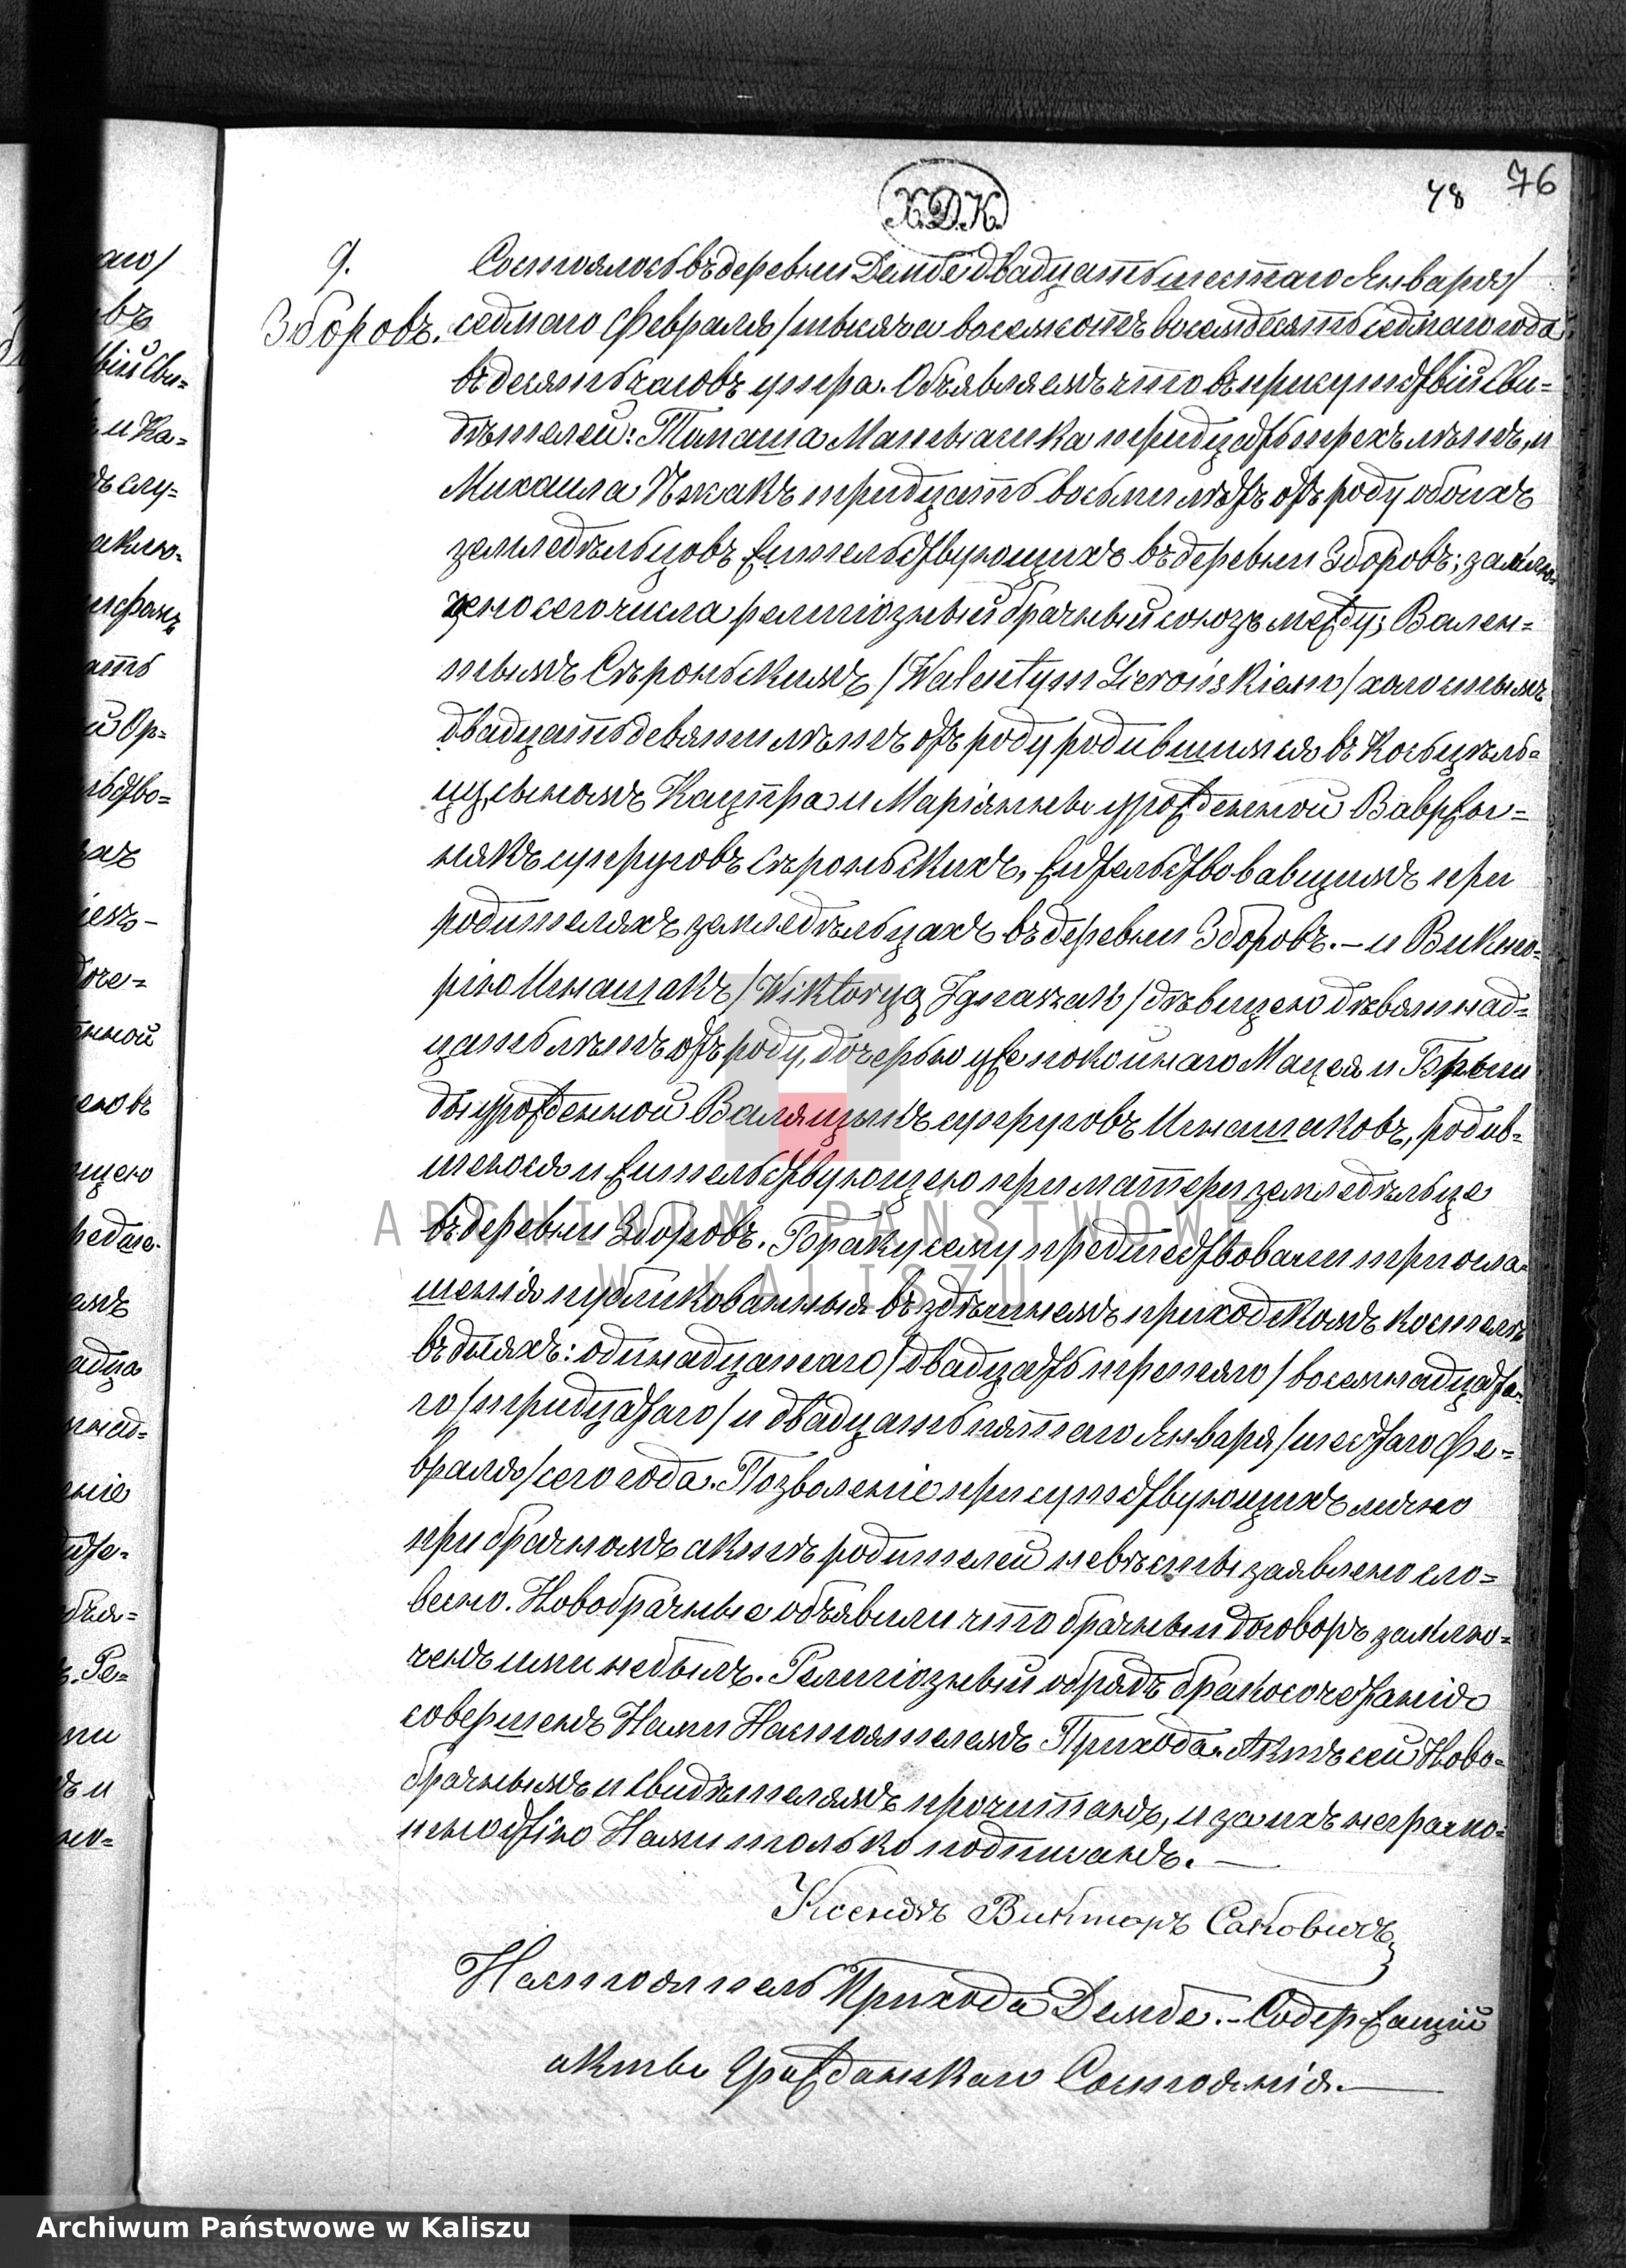 аго/
въ
вій Сви=
и Ка=
ъ слу=
аклю=
ать
й Ор=
ьство=
ахъ
доче=
нной
еновъ
ющею
редше-
емъ
адца
надъ=
еніе
объя=
ъ. Ре=
ми
ъ и
Х.Д.К.
48 76
9.
Зборовъ.
Состоялось въ деревни Дембе двадцать шестаго Января/
седмаго Февраля/ тысяча восемсотъ восемдесятъ седмаго года
въ десять часовъ утра. Объявляемъ что въ присутствіи Сви=
дѣтелей: Томаша Матысяка тридцать трехъ лѣтъ, и
Михаила тридцать восьми лѣтъ отъ роду обоихъ
земледѣльцовъ жительствующихъ въ деревни Зборовъ; заклю=
чено сего числа религіозный брачный союзъ между; Вален=
тымъ Сѣроньскимъ /Walentym Sierońskiem/ холостымъ
двадцать девяти лѣтъ отъ роду родившимся въ Косьцѣль=
цу, сыномъ Кацпра и Маріянны урожденной Вавржы=
някъ супруговъ Сѣроньскихъ, жительствовавщимъ при
родителяхъ земледѣльцахъ въ деревни Зборовъ. – и Викто=
рію Игнашакъ /Wiktoryą Ignaszak/ дѣвицею дѣвятнад=
цать лѣтъ отъ роду, дочерью уже покойнаго Мацея и Бры
ды урожденной супруговъ Игнашаковъ, родив=
шеюся и жительствующею при матери земледѣльце
въ деревни Зборовъ. Браку сему предшествовали три огла=
шенія публикованныя въ здѣшнемъ приходскомъ костелѣ
въ дняхъ: одинадцатаго /двадцать третяго/ восемнадцата=
го /тридцатаго/ и двадцать пятаго Января /шестаго Фе=
враля/ сего года. Позволеніе присутствующихъ лично
при брачномъ актѣ родителей невѣсты заявлено сло=
весно. Новобрачные объявили что брачный договоръ заклю=
ченъ ими не былъ. Религіозный обрядъ бракосочетанія
совершенъ Нами Настоятелемъ Прихода. Актъ сей Ново=
брачнымъ и свидѣтелямъ прочитанъ, и за ихъ неграмо=
тностію Нами только подписанъ. —
Ксендзъ Викторъ Саковичъ
Настоятель Прихода Дембе. – Содержащій
акты Гражданскаго Состоянія. —
ARCHIWUM PAŃSTWOWE
W KALISZU
Archiwum Państwowe w Kaliszu